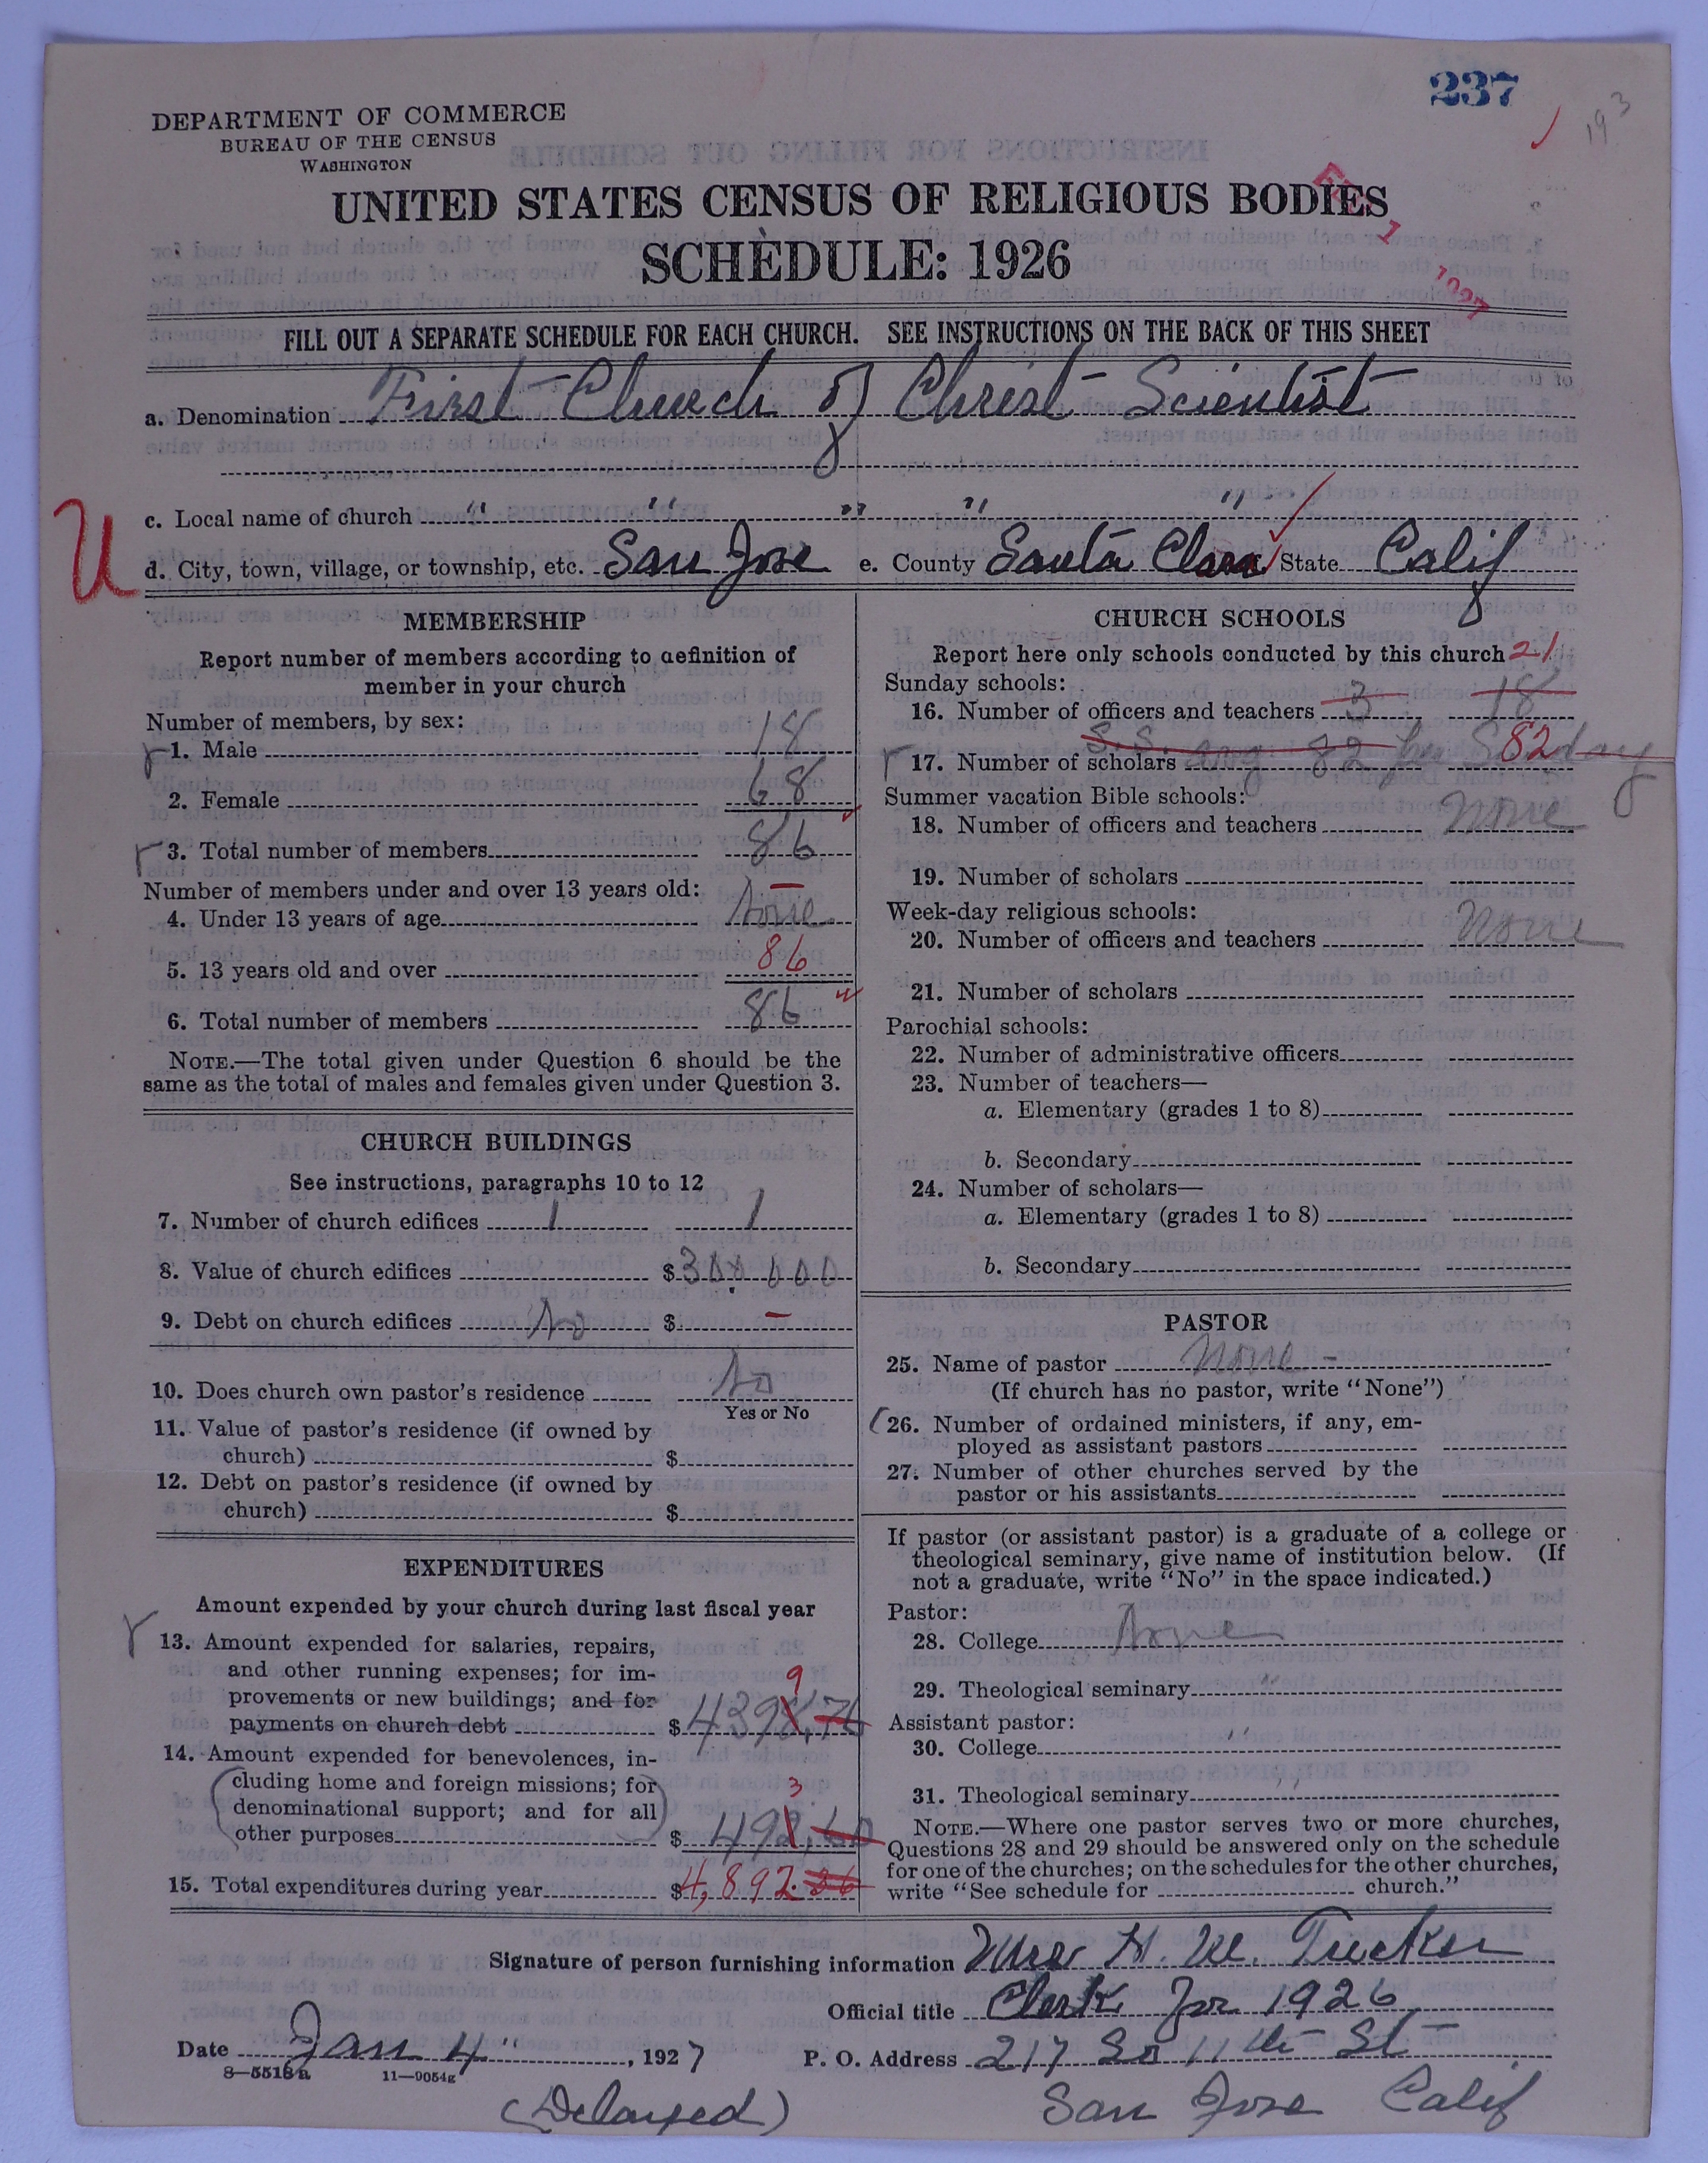 237
193
DEPARTMENT OF COMMERCE
BUREAU OF THE CENSUS
WASHINGTON
UNITED STATES CENSUS OF RELIGIOUS BODIES
SCHEDULE: 1926
FEB 1 1927
FILL OUT A SEPARATE SCHEDULE FOR EACH CHURCH. SEE INSTRUCTIONS ON THE BACK OF THIS SHEET
a. Denomination First Church of Christ Scientist
c. Local name of church " " " " "
U
d. City, town, village, or township, etc. San Jose e. County Santa Clara State Calif
MEMBERSHIP
Report number of members according to definition of
member in your church
Number of members, by sex:
1. Male 18
2. Female 68
3. Total number of members 86
Number of members under and over 13 years old:
4. Under 13 years of age None –
5. 13 years old and over 86
6. Total number of members 86
NOTE.—The total given under Question 6 should be the
same as the total of males and females given under Question 3.
CHURCH BUILDINGS
See instructions, paragraphs 10 to 12
7. Number of church edifices 1 1
8. Value of church edifices $300000
9. Debt on church edifices No $ –
10. Does church own pastor's residence No
Yes or No
11. Value of pastor's residence (if owned by
church) $
12. Debt on pastor's residence (if owned by
church) $
EXPENDITURES
Amount expended by your church during last fiscal year
13. Amount expended for salaries, repairs,
and other running expenses; for im-
9
provements or new buildings; and for
payments on church debt $4398.76
14. Amount expended for benevolences, in-
cluding home and foreign missions; for
3
denominational support; and for all
other purposes $492.60
15. Total expenditures during year $4,892.36
CHURCH SCHOOLS
Report here only schools conducted by this church 21
Sunday schools:
16. Number of officers and teachers 3 18
S.S. avg 82 per Sunday 82
17. Number of scholars
Summer vacation Bible schools:
18. Number of officers and teachers None
19. Number of scholars
Week-day religious schools:
20. Number of officers and teachers None
21. Number of scholars
Parochial schools:
22. Number of administrative officers
23. Number of teachers—
a. Elementary (grades 1 to 8)
b. Secondary
24. Number of scholars—
a. Elementary (grades 1 to 8)
b. Secondary
PASTOR
25. Name of pastor None -
(If church has no pastor, write "None")
26. Number of ordained ministers, if any, em-
ployed as assistant pastors
27. Number of other churches served by the
pastor or his assistants
If pastor (or assistant pastor) is a graduate of a college or
theological seminary, give name of institution below. (If
not a graduate, write "No" in the space indicated.)
Pastor:
28. College None
29. Theological seminary "
Assistant pastor:
30. College "
31. Theological seminary "
NOTE.—Where one pastor serves two or more churches,
Questions 28 and 29 should be answered only on the schedule
for one of the churches; on the schedules for the other churches,
write "See schedule for church."
Signature of person furnishing information Mrs H. M. Tucker
Official title Clerk for 1926
Date Jan 4", 1927 P. O. Address 217 So 11th St
8—5518a 11—9054g
(Delayed) San Jose Calif